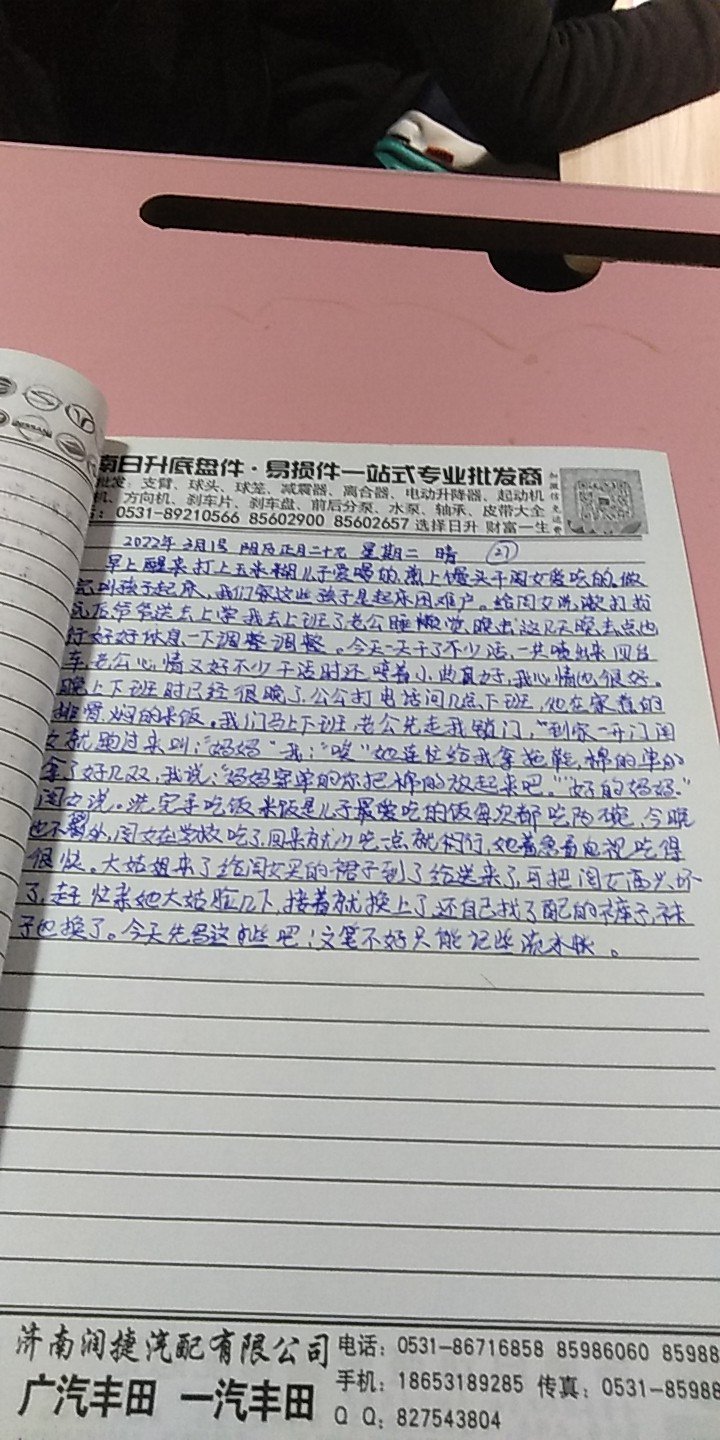 NISSAN
南日升底盘件·易损件一站式专业批发商
批发:支臂、球头、球笼、减震器、离合器、电动升降器、起动机
机、方向机、刹车片、刹车盘、前后分泵、水泵、轴承、皮带大全
:0531-89210566 85602900 85602657 选择日升 财富一生
加微信免运费
2022年3月1号 阴历正月二十九 星期二 晴 27
早上醒来打上玉米糊儿子爱喝的,煎上馒头干闺女爱吃的,做
完叫孩子起床,我们家这些孩子是起床困难户。给闺女洗漱打扮
完后爷爷送去上学我去上班了,老公睡懒觉晚出这几天晚去点也
行好好休息一下调整调整。今天一天干了不少活,一共喷出来四台
车,老公心情又好不少干活时还唱着小曲真好,我心情也很好。
晚上下班时已经很晚了,公公打电话问几点下班,他在家煮的
排骨焖的米饭。我们马上下班,老公先走我锁门,“到家一开门闺
女就跑过来叫:“妈妈”我:“唉”她连忙给我拿拖鞋,棉的单的
拿了好几双,我说:“妈妈穿单的你把棉的放起来吧。”“好的妈妈。”
闺女说。洗完手吃饭米饭是儿子最爱吃的饭每次都吃两碗,今晚
也不例外,闺女在学校吃了,回来就少吃一点就行,她着急看电视吃得
很快。大姑姐来了给闺女买的裙子到了给送来了,可把闺女高兴坏
了,赶忙亲她大姑脸几下,接着就换上了,还自己找了配的裤子,袜
子也换了。今天先写这些吧!文笔不好只能记些流水账。
济南润捷汽配有限公司 电话:0531-86716858 85986060 85988
广汽丰田 一汽丰田 手机:18653189285 传真:0531-85988
QQ:827543804